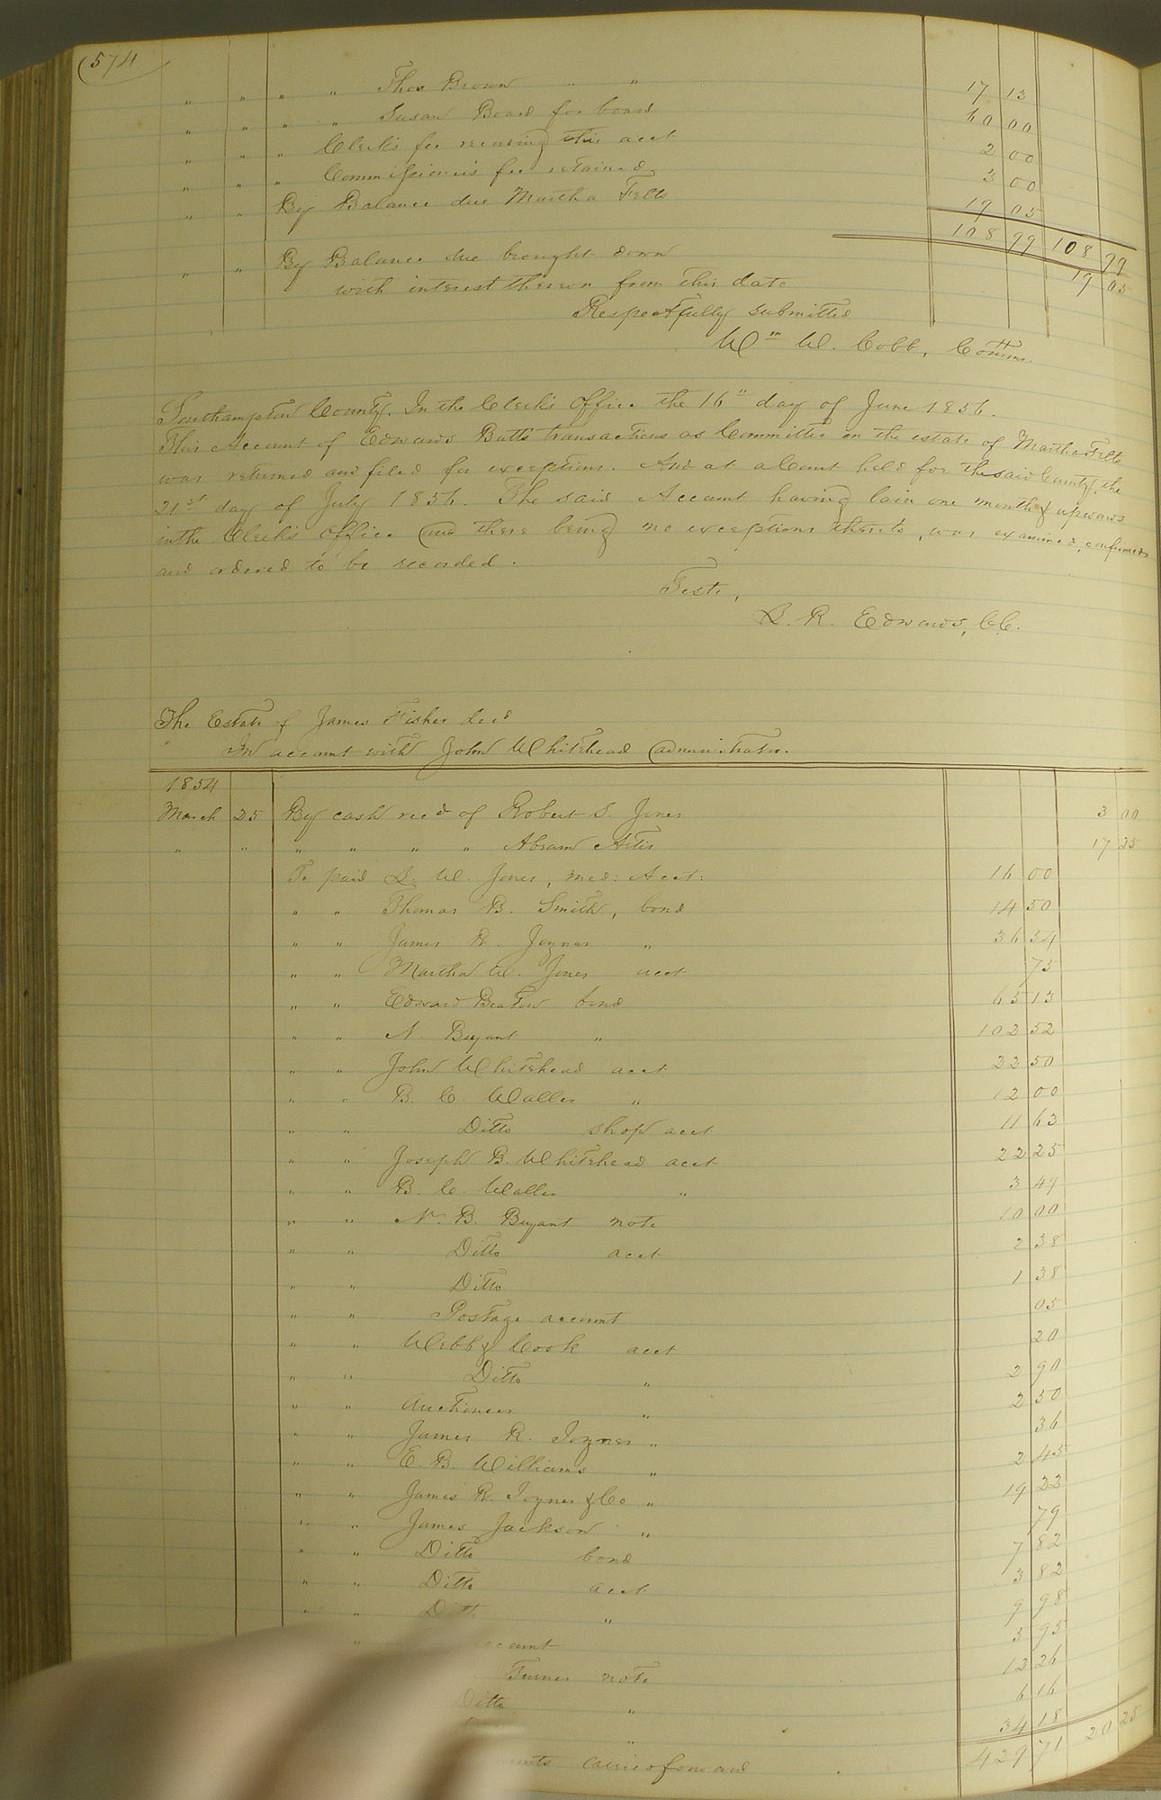 (574
" " " " Thos Brown " " 17 13
" " " " Susan Beard for board 60 00
" " " Clerk's fee recording this acct 2 00
" " " Commissioner's fee retained 3 00
" " By Balance due Martha Felts 19 05
108 99 108 99
" " By Balance due brought down 19 05
with interest thereon from this date
Respectfully submitted
Wm W. Cobb, Comm.
Southampton County. In the Clerk's Office the 16" day of June 1856.
This Account of Edward Butts transactions as Committee on the estate of Martha Felts
was returned and filed for exceptions. And at a Court held for the said County, the
21st day of July 1856. The said Account having lain one month & upwards
in the Clerk's Office and there being no exceptions thereto, was examined, confirmed
and ordered to be recorded.
Teste,
L. R. Edwards, CC.
The Estate of James Fisher decd
In account with John Whitehead administrator.
1854
March 25 By cash recd of Robert S. Jones 3 00
" " " " " " Abram Artis 17 25
To paid L. W. Jones, med: Acct: 16 00
" " Thomas B. Smith, bond 14 50
" " James R. Joyner " 36 34
" " Martha W. Jones acct 75
" " Edward Beaton bond 65 13
" " N. Bryant " 102 52
" " John Whitehead acct 22 50
" " B. C. Waller " 12 00
" " Ditto shop acct 11 63
" " Joseph B. Whitehead acct 22 25
" " B. C. Waller " 3 49
" " N. B. Bryant note 10 00
" " Ditto acct 2 38
" " Ditto 1 38
" " Postage account 05
" " Webb & Cook acct 20
" " Ditto " 2 90
" " Auctioneer " 2 50
" " James R. Joyner " 36
" " E. B. Williams " 2 45
" " James R. Joyner & Co " 19 23
" " James Jackson " 79
" " Ditto bond 7 82
" " Ditto acct 3 82
" " Ditto " 9 98
" account 3 95
Turner note 12 26
Ditto " 6 16
" 34 18
carried forward 429 71 20 25